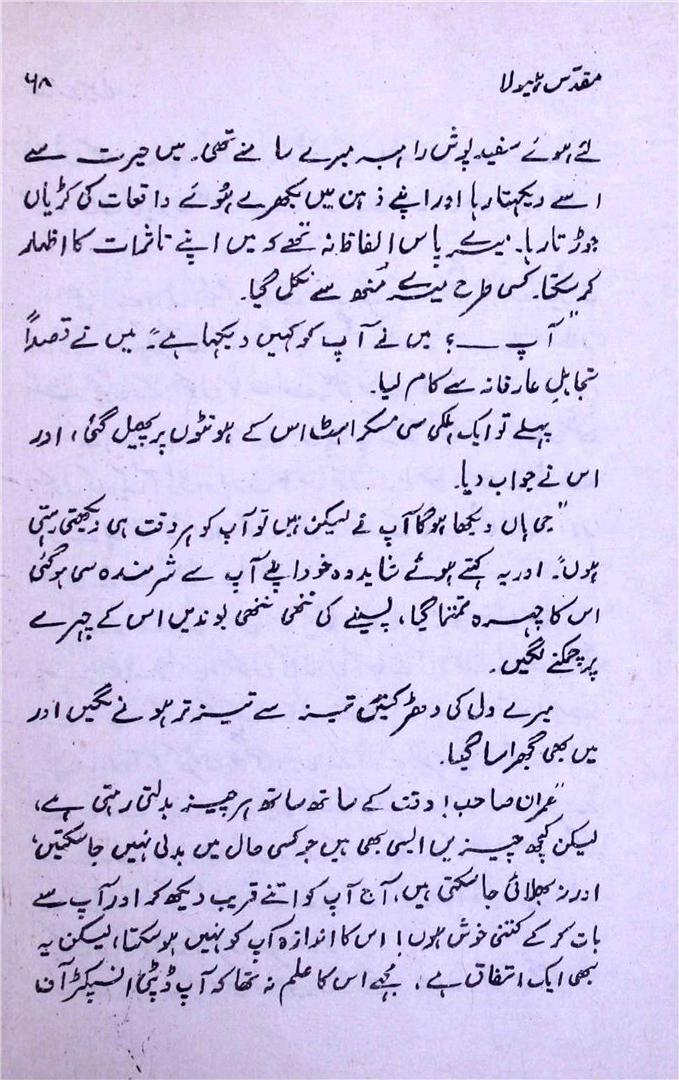 مقدّس ہیولا ۶۸
لئے ہوئے سفید پوش راہبہ میرے سامنے تھی۔ میں حیرت سے
اسے دیکھتا رہا اور اپنے ذہن میں بکھرے ہُوئے واقعات کی کڑیاں
جوڑتا رہا۔ میرے پاس الفاظ نہ تھے کہ میں اپنے تاثرات کا اظہار
کر سکتا۔ کسی طرح میرے مُنھ سے نکل گیا۔
"آپ ـــــ؟ میں نے آپ کو کہیں دیکھا ہے" میں نے قصداً
تجاہلِ عارفانہ سے کام لیا۔
پہلے تو ایک ہلکی سی مسکراہٹ اس کے ہونٹوں پر پھیل گئی، اور
اس نے جواب دیا۔
"جی ہاں دیکھا ہوگا آپ نے لیکن میں تو آپ کو ہر وقت ہی دیکھتی رہتی
ہوں"۔ اور یہ کہتے ہوئے شاید وہ خود اپنے آپ سے شرمندہ سی ہوگئی
اس کا چہرہ تمتما گیا، پسینے کی ننھی ننھی بوندیں اس کے چہرے
پر چمکنے لگیں۔
میرے دل کی دھڑکنیں تیز سے تیز تر ہونے لگیں اور
میں بھی گھبرا سا گیا۔
"عمران صاحب! وقت کے ساتھ ساتھ ہر چیز بدلتی رہتی ہے،
لیکن کچھ چیزیں ایسی بھی ہیں جو کسی حال میں بدلی نہیں جا سکتیں،
اور نہ بھلائی جا سکتی ہیں، آج آپ کو اتنے قریب دیکھ کر اور آپ سے
بات کر کے کتنی خوش ہوں! اس کا اندازہ آپ کو نہیں ہو سکتا، لیکن یہ
بھی ایک اتفاق ہے، مجھے اس کا علم نہ تھا کہ آپ ڈپٹی انسپکٹر آف